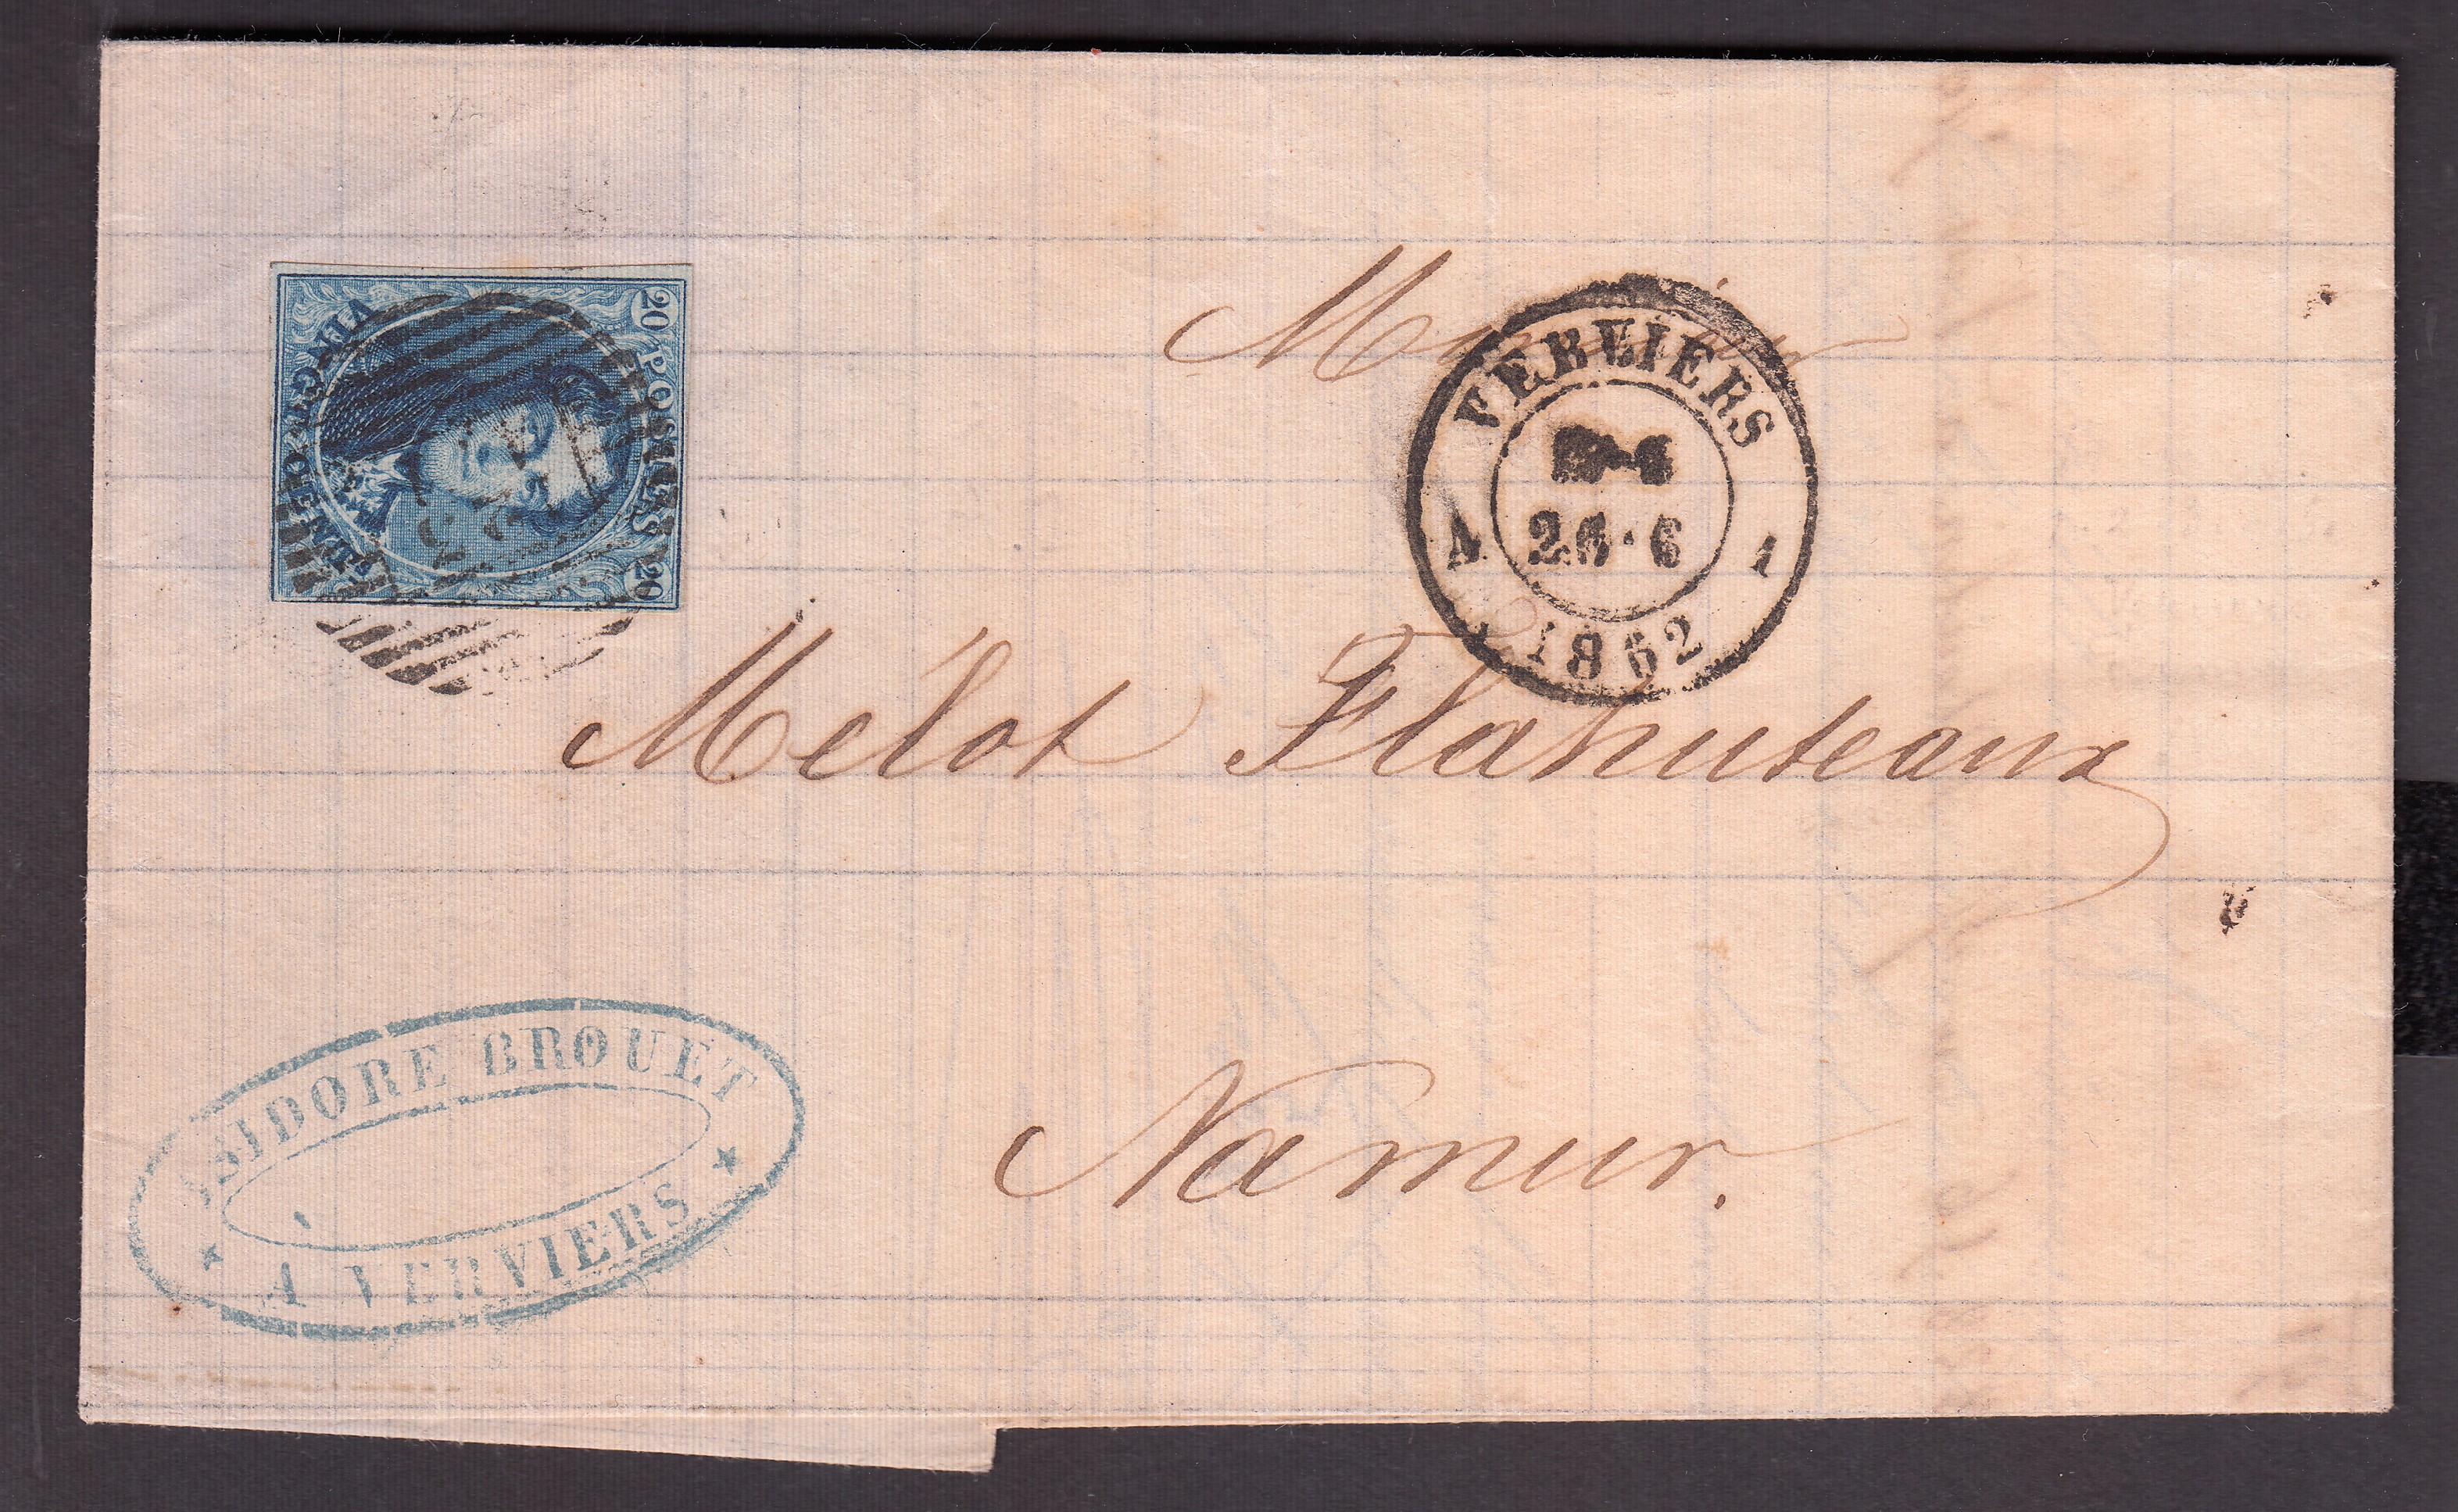 20 POSTES 20
VINGT CENTIMES
Monsieur
VERVIERS
26 · 6
1
1862
Mélot Flahuteaux
Namur.
ISIDORE BROUET
A VERVIERS